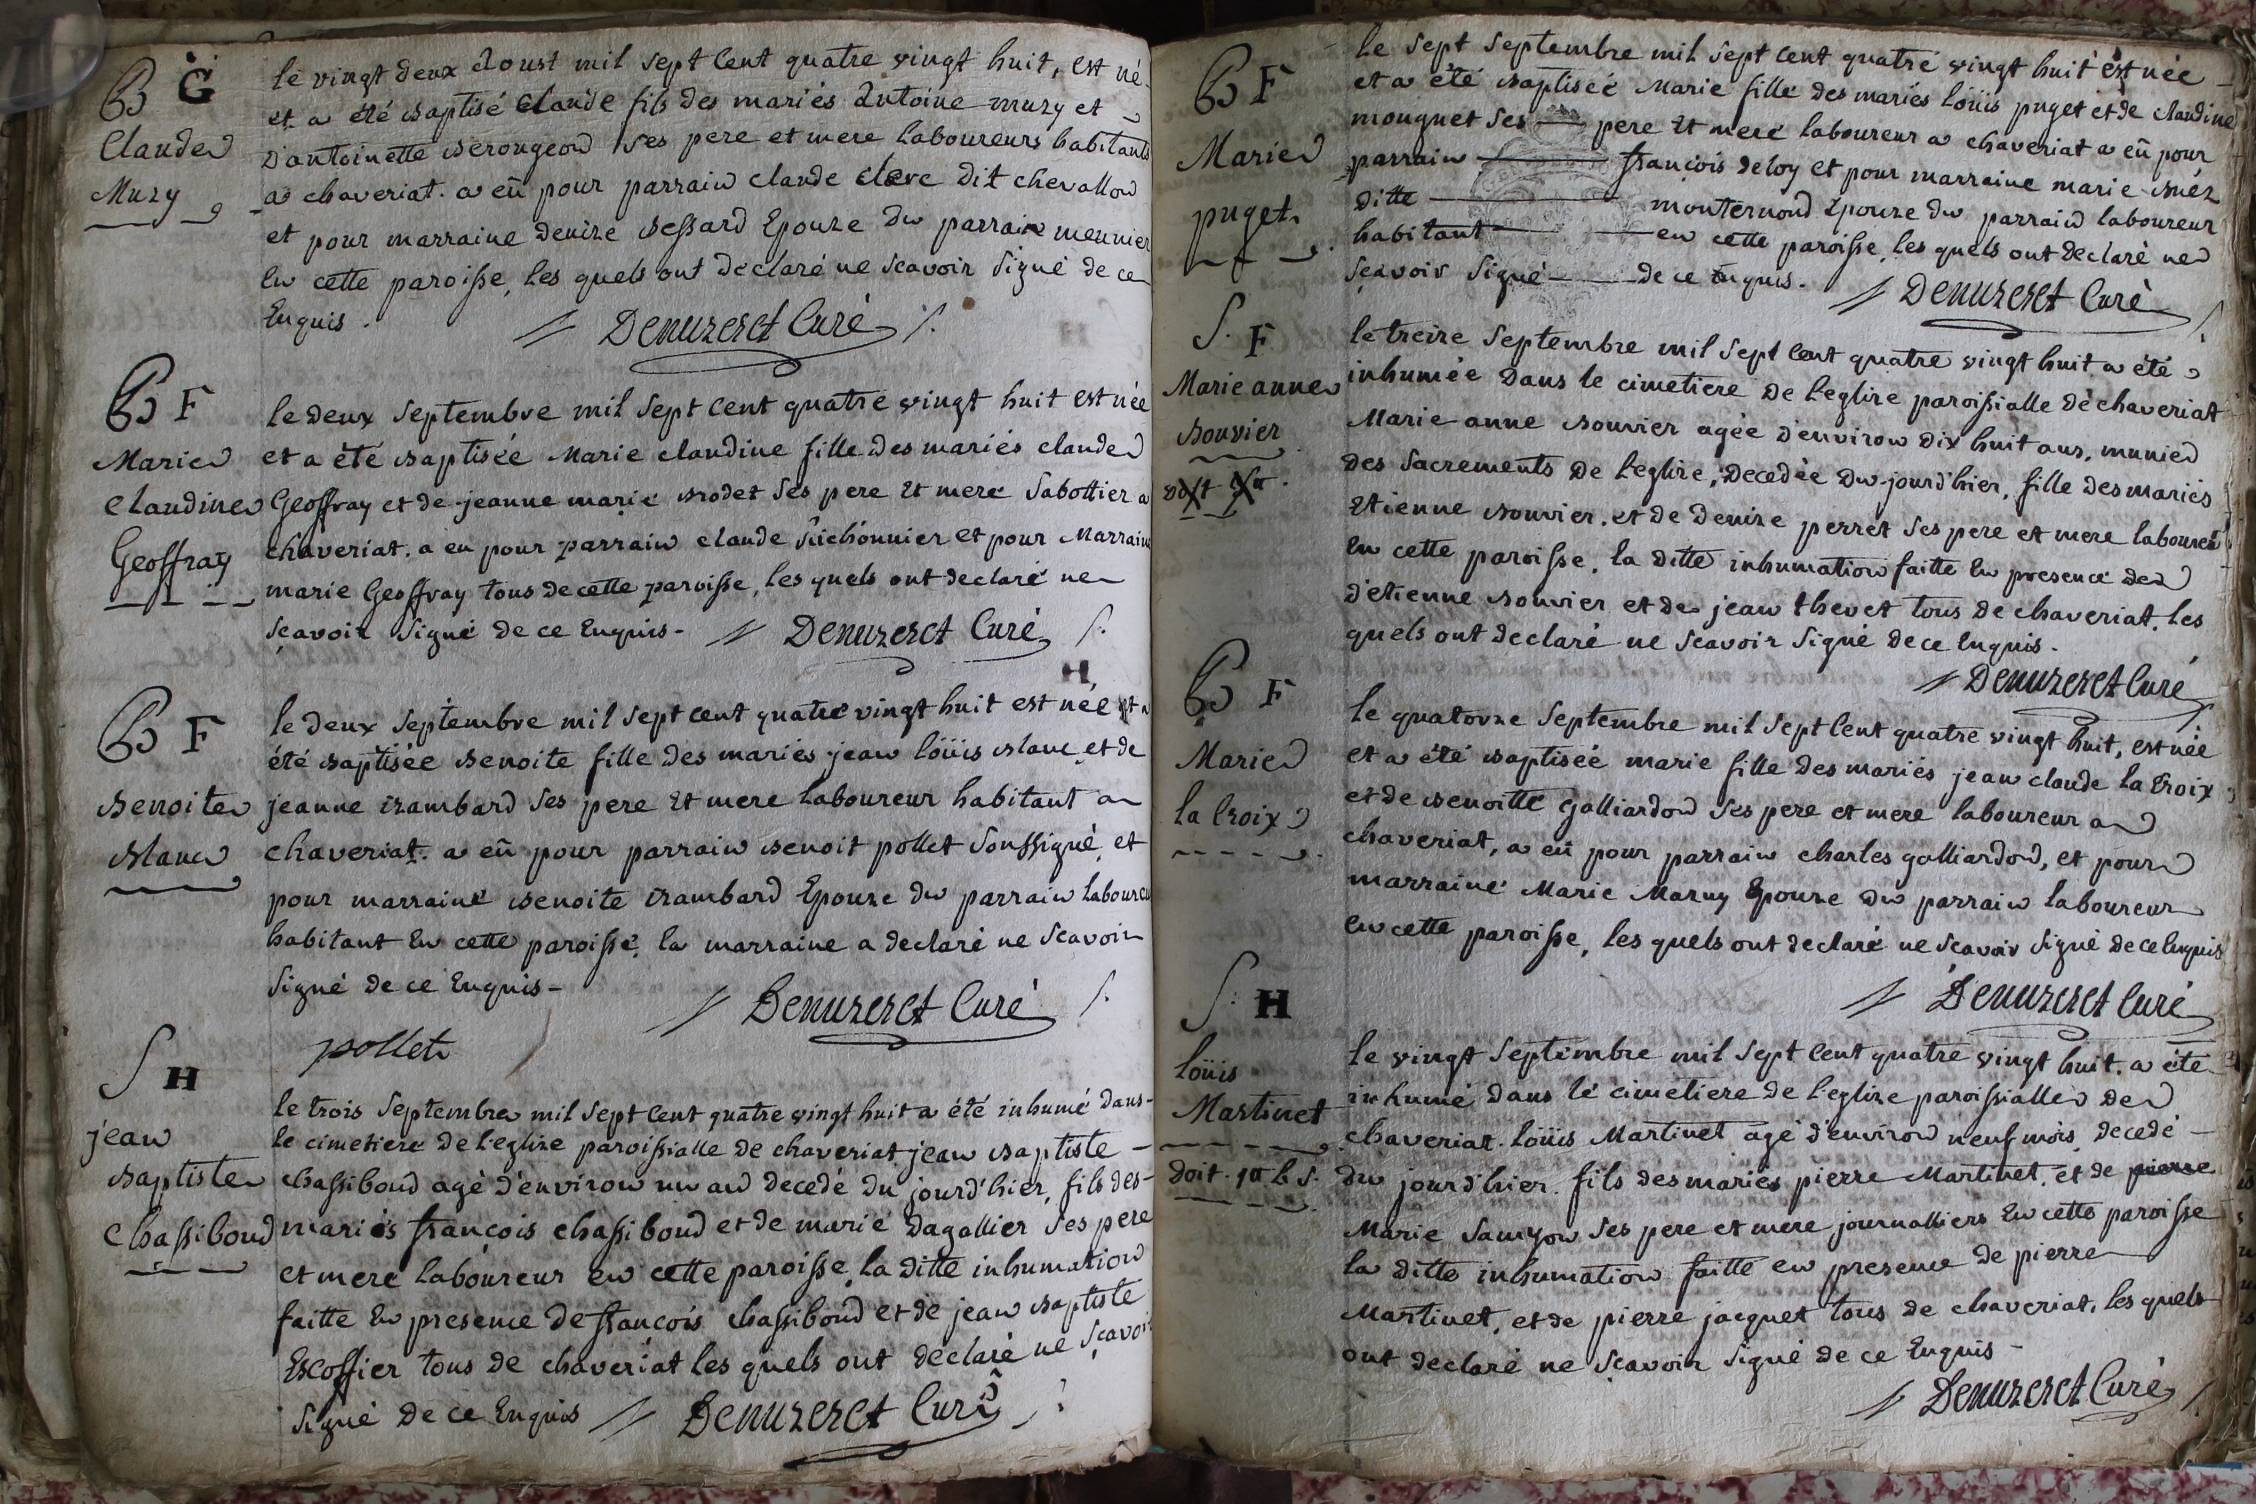 B G
Claude
Muzy
le vingt deux aoust mil sept cent quatre vingt huit, est né
et a été baptisé Claude fils des mariés Antoine muzy et
D'antoinette berongeon ses pere et mere laboureurs habitants
a chaveriat. a eû pour parrain claude clerc dit chevallon
et pour marraine denize bessard Epouze du parrain meunier
En cette paroisse, les quels ont déclaré ne scavoir signé de ce
Enquis.
Denuzeret Curé
B F
Marie
Claudine
Geoffray
le deux septembre mil sept cent quatre vingt huit est née
et a été baptisée Marie claudine fille des mariés claude
Geoffray et de jeanne marie brodet ses pere et mere sabottier a
chaveriat. a eu pour parrain claude Bichonnier et pour Marraine
marie Geoffray tous de cette paroisse, les quels ont declaré ne
scavoir signé de ce Enquis-
Denuzeret Curé
H
B F
benoite
blanc
le deux septembre mil sept cent quatre vingt huit est née et a
été baptisée benoite fille des mariés jean löüis blanc et de
jeanne izambard ses pere et mere laboureur habitant a
chaveriat. a eû pour parrain benoit pollet soussigné, et
pour marraine benoite izambard Epouze du parrain laboureur
habitant En cette paroisse. la marraine a declaré ne scavoir
signé de ce Enquis-
Denuzeret Curé
pollet
S H
jean
baptiste
chassiboud
le trois septembre mil sept cent quatre vingt huit a été inhumé dans
le cimetiere de l'eglize paroissialle de chaveriat jean baptiste
chassiboud agé d'environ un an decedé du jourd'hier, fils des
mariés françois chassiboud et de marie Dagallier ses pere
et mere laboureur en cette paroisse, la ditte inhumation
faitte En presence de françois chassiboud et de jean baptiste
Escoffier tous de chaveriat les quels ont declaré ne scavoir
signé de ce Enquis
Denuzeret Curé
B F
Marie
puget
le sept septembre mil sept cent quatre vingt huit est née
et a été baptisée Marie fille des mariés löüis puget et de claudine
monguet ses pere et mere laboureur a chaveriat a eû pour
parrain françois deloy et pour marraine marie
ditte monternond Epouze du parrain laboureur
habitant en cette paroisse, les quels ont declaré ne
scavoir signé de ce Enquis.
Denuzeret Curé
S. F
Marie anne
bouvier
le treize septembre mil sept cent quatre vingt huit a été
inhumée dans le cimetiere de l'eglize paroissialle de chaveriat
Marie anne bouvier agée d'environ dix huit ans, munie
des sacrements de l'eglize, decedée du jourd'hier, fille des mariés
Etienne bouvier, et de denize perret ses pere et mere laboureur
En cette paroisse, la ditte inhumation faitte En presence de
d'etienne bouvier et de jean thevet tous de chaveriat. les
quels ont declaré ne scavoir signé de ce Enquis.
Denuzeret Curé
B F
Marie
la Croix
le quatorze septembre mil sept cent quatre vingt huit, est née
et a été baptisée marie fille des mariés jean claude la Croix
et de benoitte galliardon ses pere et mere laboureur a
chaveriat, a eû pour parrain charles galliardon, et pour
marraine Marie Mazuy Epouze du parrain laboureur
En cette paroisse, les quels ont declaré ne scavoir signé de ce Enquis
Denuzeret Curé
S. H
löüis
Martinet
doit
le vingt septembre mil sept cent quatre vingt huit. a été
inhumé dans le cimetiere de l'eglize paroissialle de
chaveriat. löüis Martinet agé d'environ neuf mois, decedé
du jourd'hier. fils des mariés pierre Martinet, et de pierre
Marie Samyon ses pere et mere journalliers En cette paroisse
la ditte inhumation faitte en presence de pierre
Martinet, et de pierre jacquet tous de chaveriat. les quels
ont declaré ne scavoir signé de ce Enquis-
Denuzeret Curé